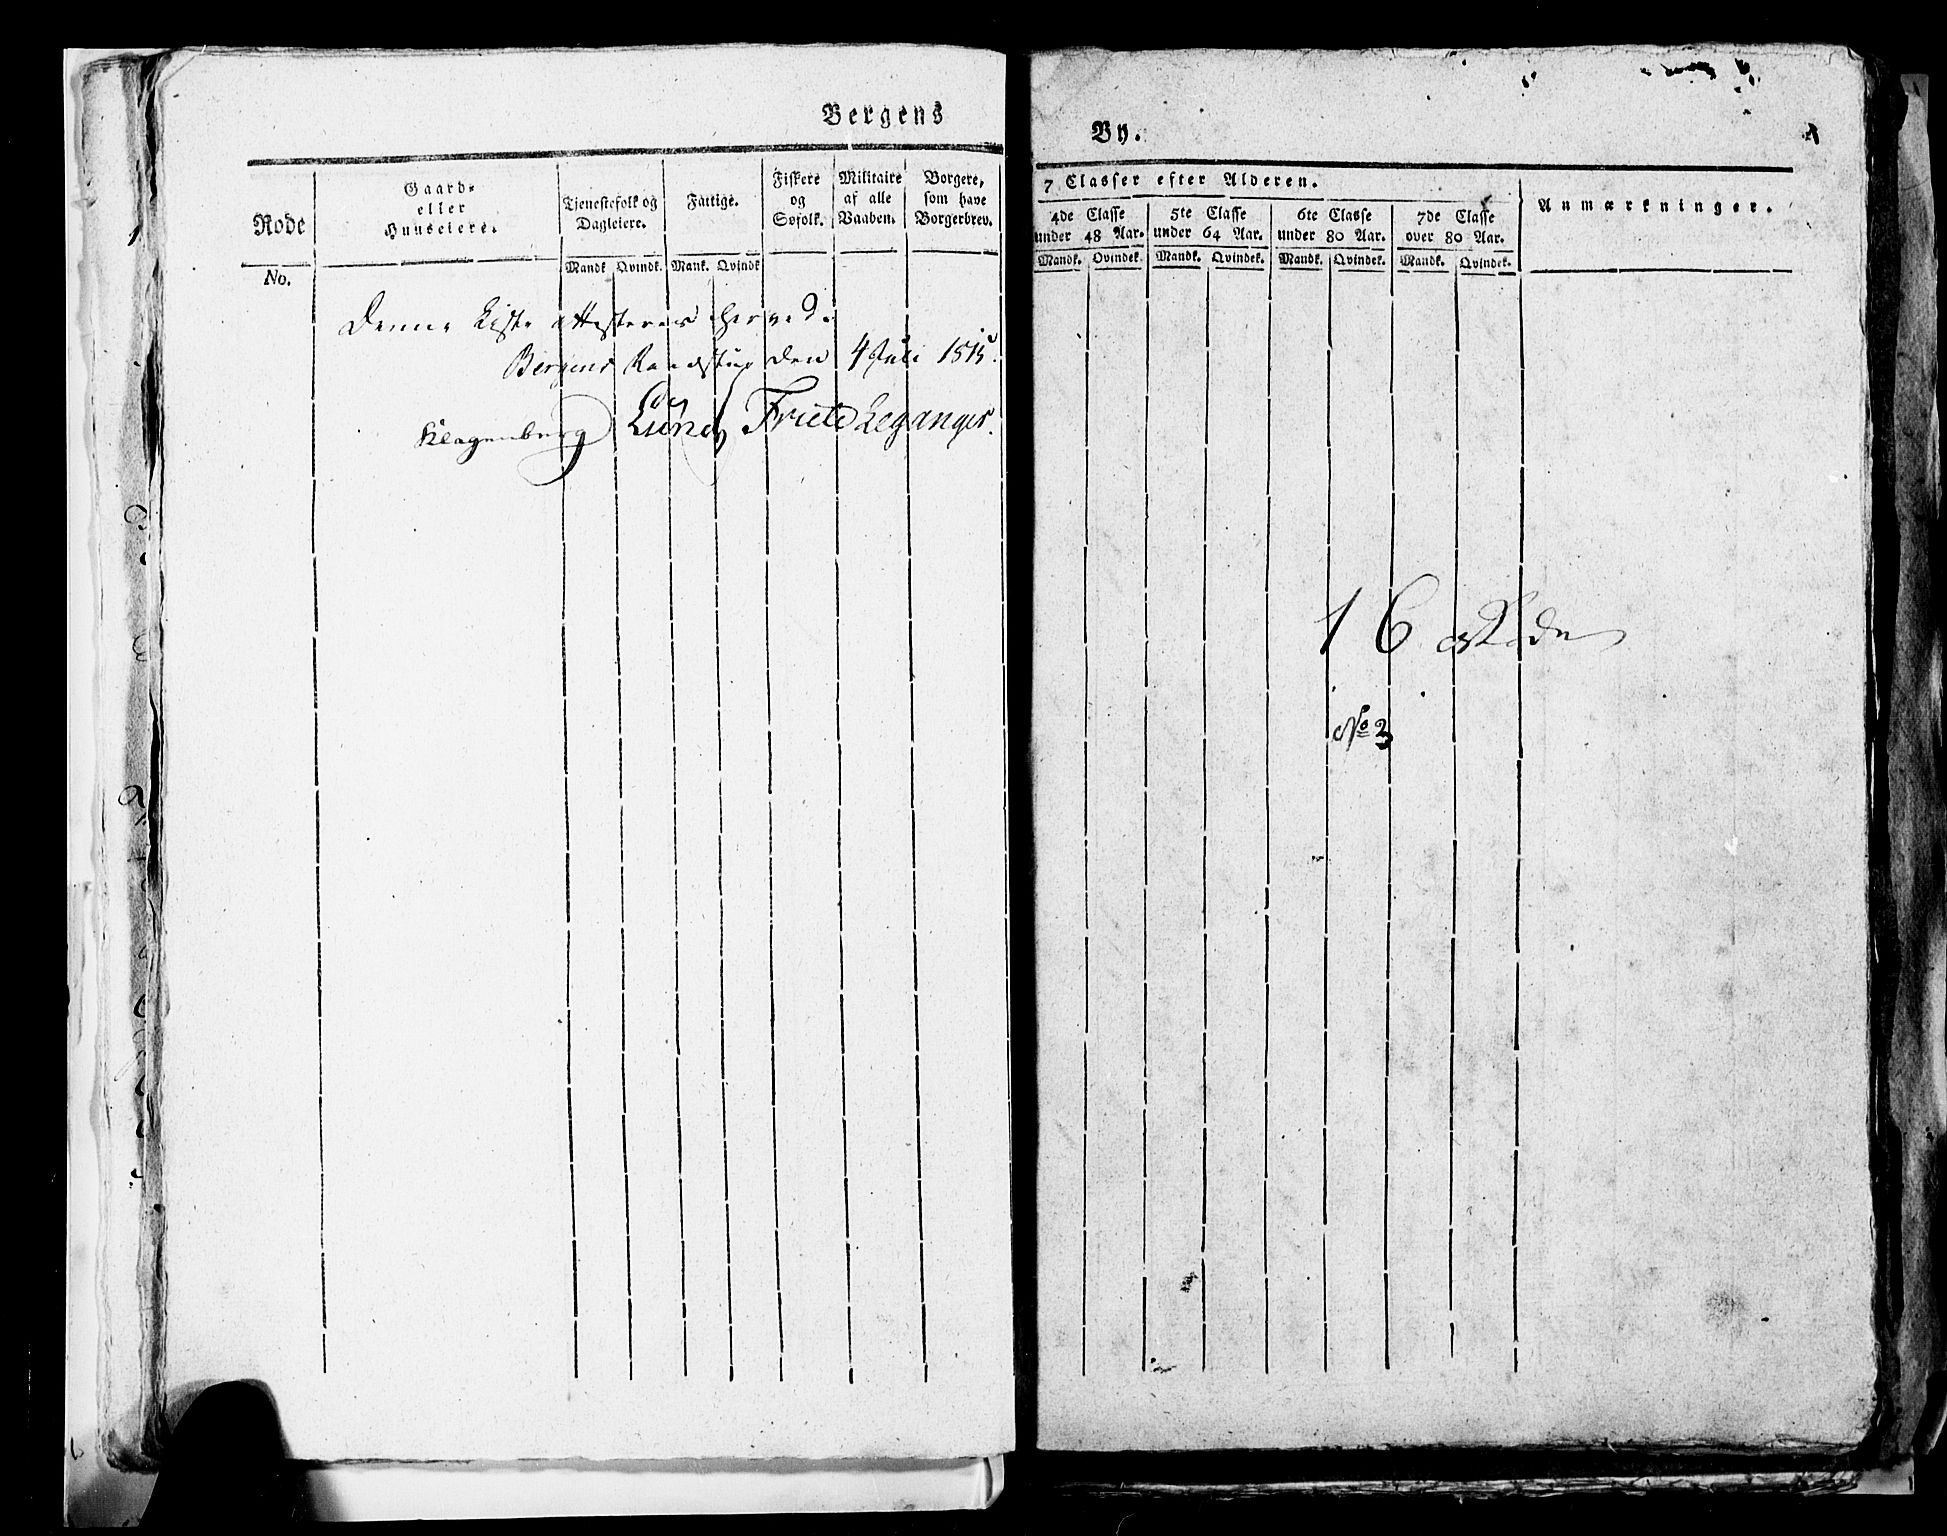 Bergens
Rode
No.
Gaard-
eller
Huuseiere.
Tjenestefolk og
Dagleiere.
Mandk. Qvindk.
Fattige.
Mank. Qvindk
Fiskere
og
Søfolk.
Militaire
af alle
Vaaben.
Borgere,
som have
Borgerbrev.
Denne Liste attesteres herved.
Bergens Raadstue den 4 Juli 1815.
Klagenberg Lund Friele Leganger.
By.
7 Classer efter Alderen.
4de Classe
under 48 Aar.
Mandk. Qvindek.
5te Classe
under 64 Aar.
Mandk. Qvindek.
6te Classe
under 80 Aar.
Mandk. Qvindek.
7de Classe
over 80 Aar.
Mandk. Qvindek.
Anmærkninger.
16 Rode
No 2